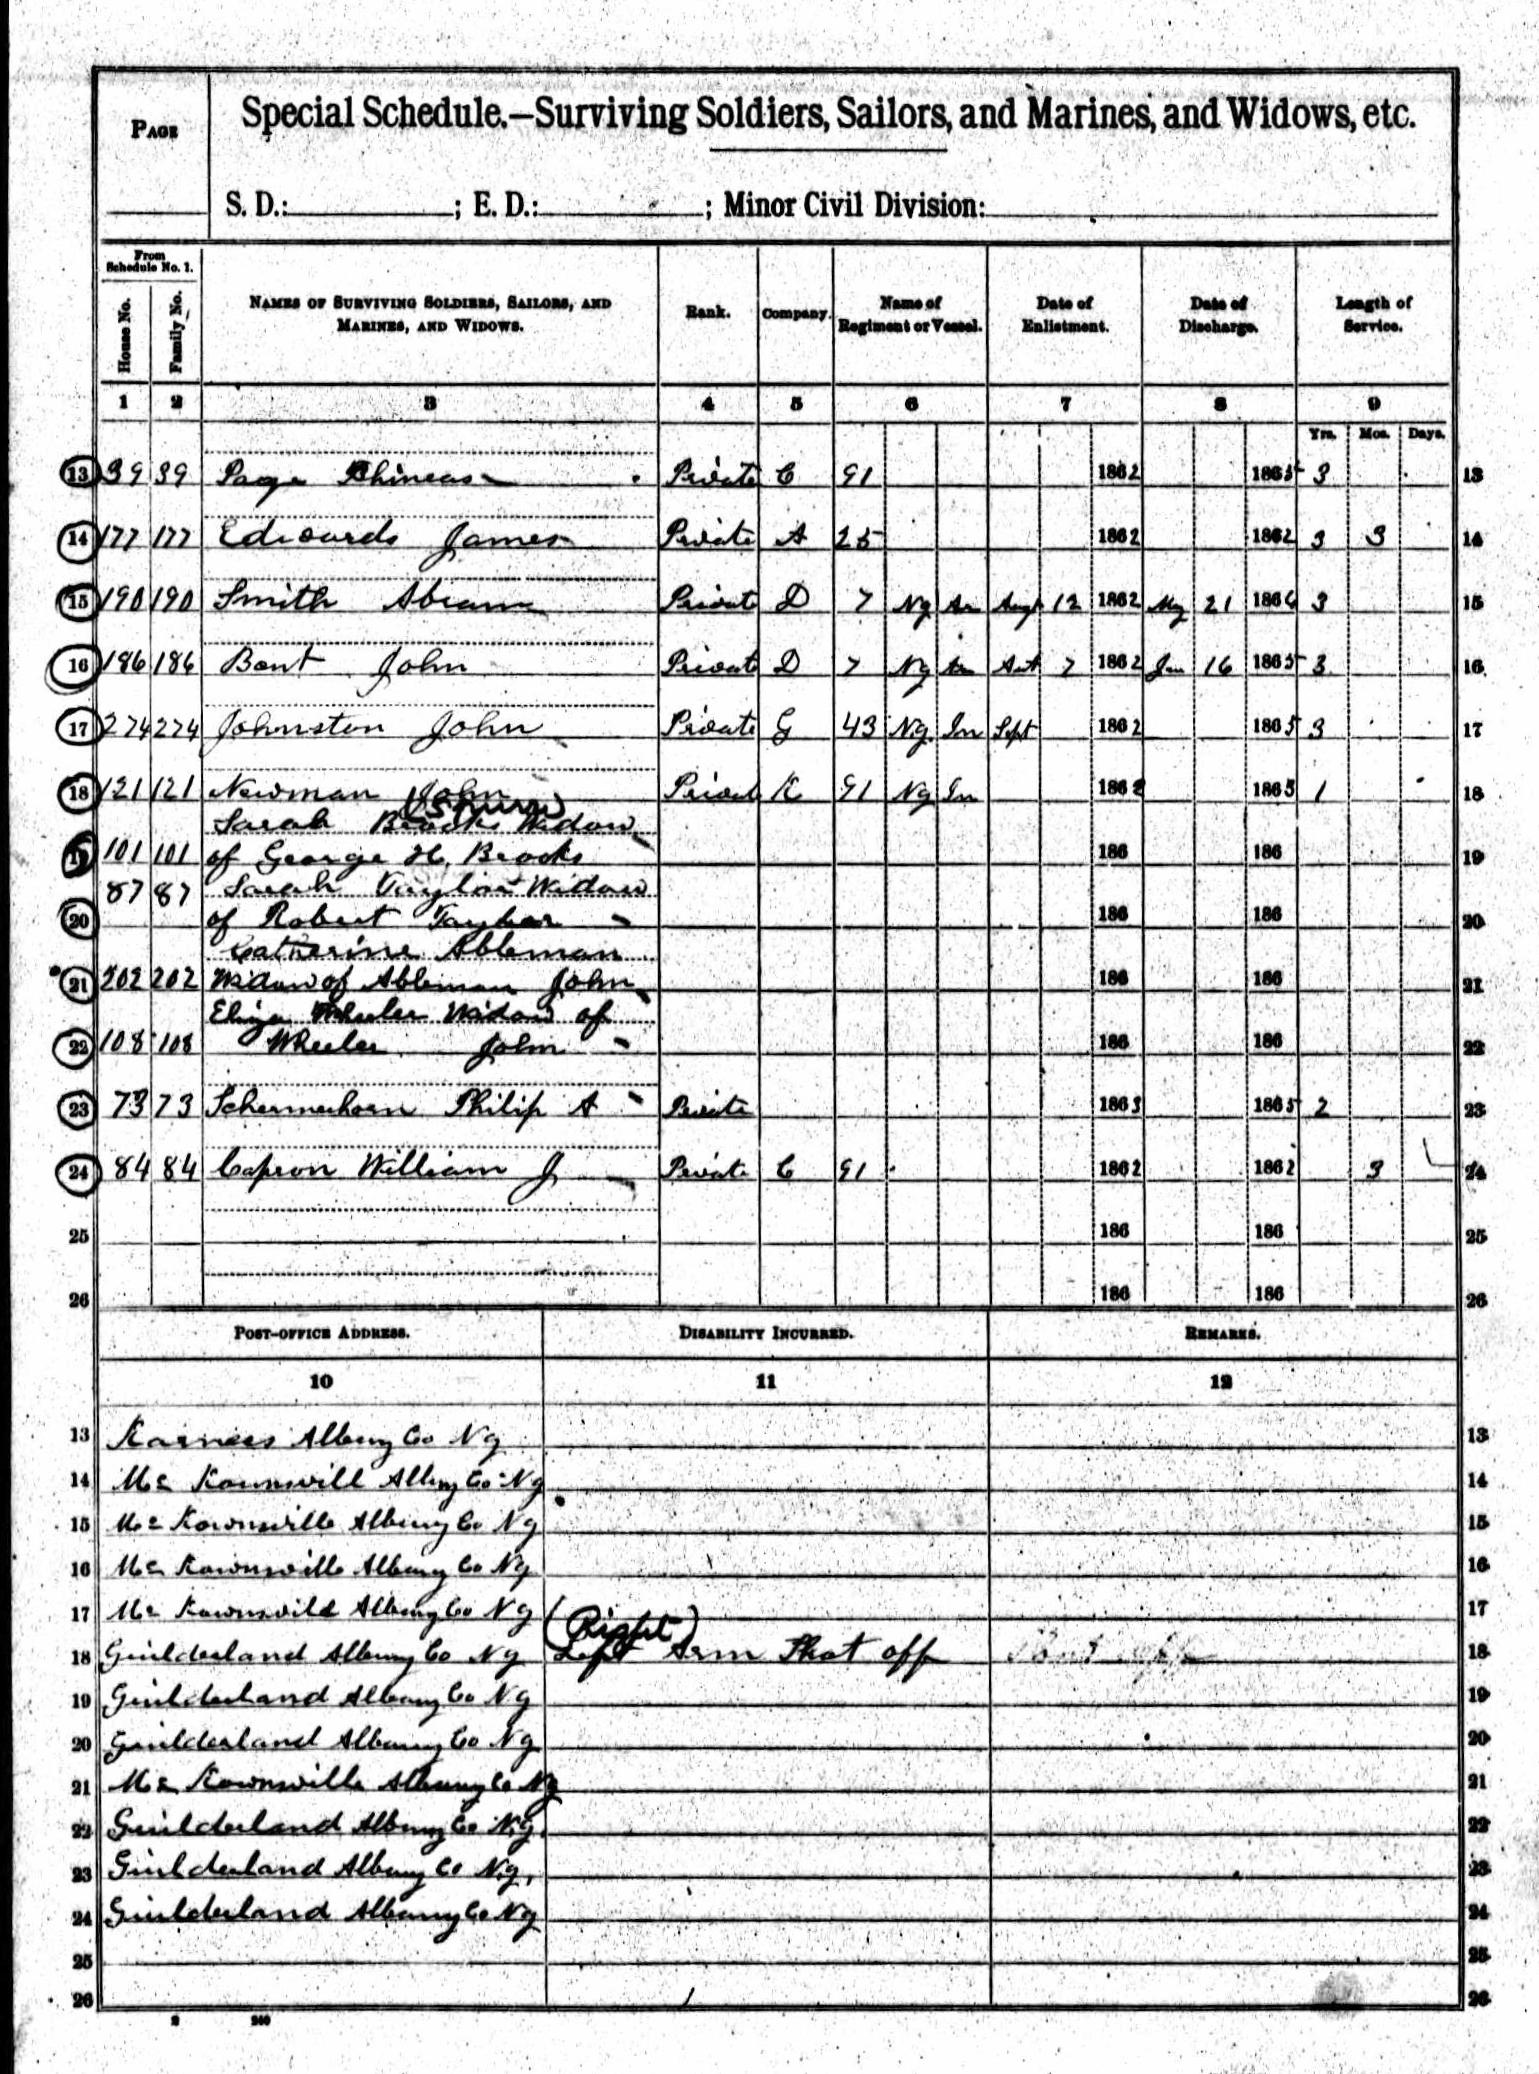 PAGE
Special Schedule.—Surviving Soldiers, Sailors, and Marines, and Widows, etc.
S. D.: ; E. D.: ; Minor Civil Division:
From Schedule No. 1.
House No.
Family No.
NAMES OF SURVIVING SOLDIERS, SAILORS, AND
MARINES, AND WIDOWS.
Rank.
Company.
Name of
Regiment or Vessel.
Date of
Enlistment.
Date of
Discharge.
Length of
Service.
1 2 3 4 5 6 7 8 9
Yrs. Mos. Days.
13 39 39 Page Phineas Private C 91 1862 1865 3 13
14 177 177 Edwards James Private A 25 1862 1862 3 3 14
15 190 190 Smith Abram Private D 7 Ny Ar Aug 12 1862 My 21 186 3 15
16 186 186 Bont John Private D 7 Ny 7 1862 Jan 16 1865 3 16
17 274 274 Johnston John Private G 43 Ny. In Sept 1862 1865 3 17
18 121 121 Newman John Private K 91 Ny In 186 1865 1 18
Sarah Brooks Widow
101 101 of George H. Brooks 186 186 19
87 87 Sarah Taylor Widow
20 of Robert Taylor 186 186 20
Catherine Ableman
21 202 202 Widow of Ableman John 186 186 21
Eliza Wheeler Widow of
22 108 108 Wheeler John 186 186 22
23 73 73 Schermerhorn Philip A Private 1863 1865 2 23
24 84 84 Capron William J Private C 91 1862 1862 3 24
25 186 186 25
26 186 186 26
POST-OFFICE ADDRESS. DISABILITY INCURRED. REMARKS.
10 11 12
13 Karners Albany Co Ny 13
14 Mc Kownsvill Albany Co Ny 14
15 Mc Kownsville Albany Co Ny 15
16 Mc Kownsville Albany Co Ny 16
17 Mc Kownsvild Albany Co Ny 17
(Right)
18 Guilderland Albany Co Ny Left Arm Shot off 18
19 Guilderland Albany Co Ny 19
20 Guilderland Albany Co Ny 20
21 Mc Kownsville Albany Co Ny 21
22 Guilderland Albany Co N.y. 22
23 Guilderland Albany Co N.y, 23
24 Guilderland Albany Co Ny 24
25 25
26 26